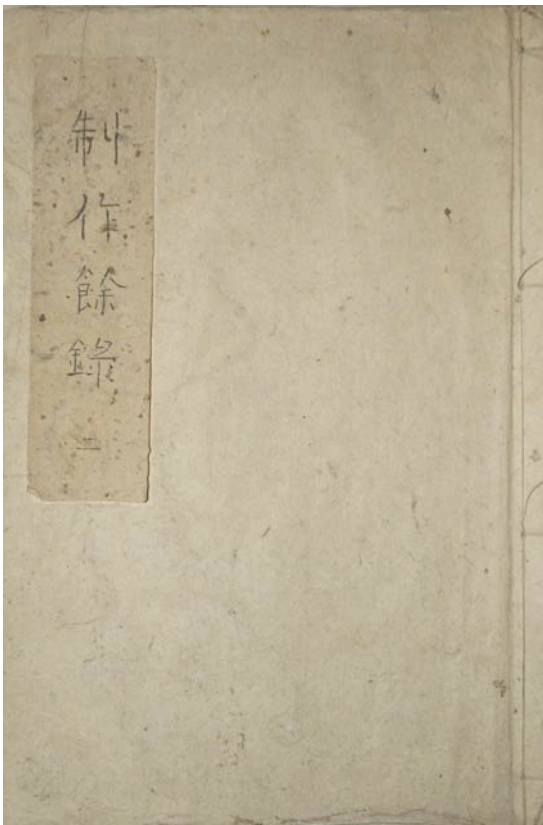 制作餘錄 二